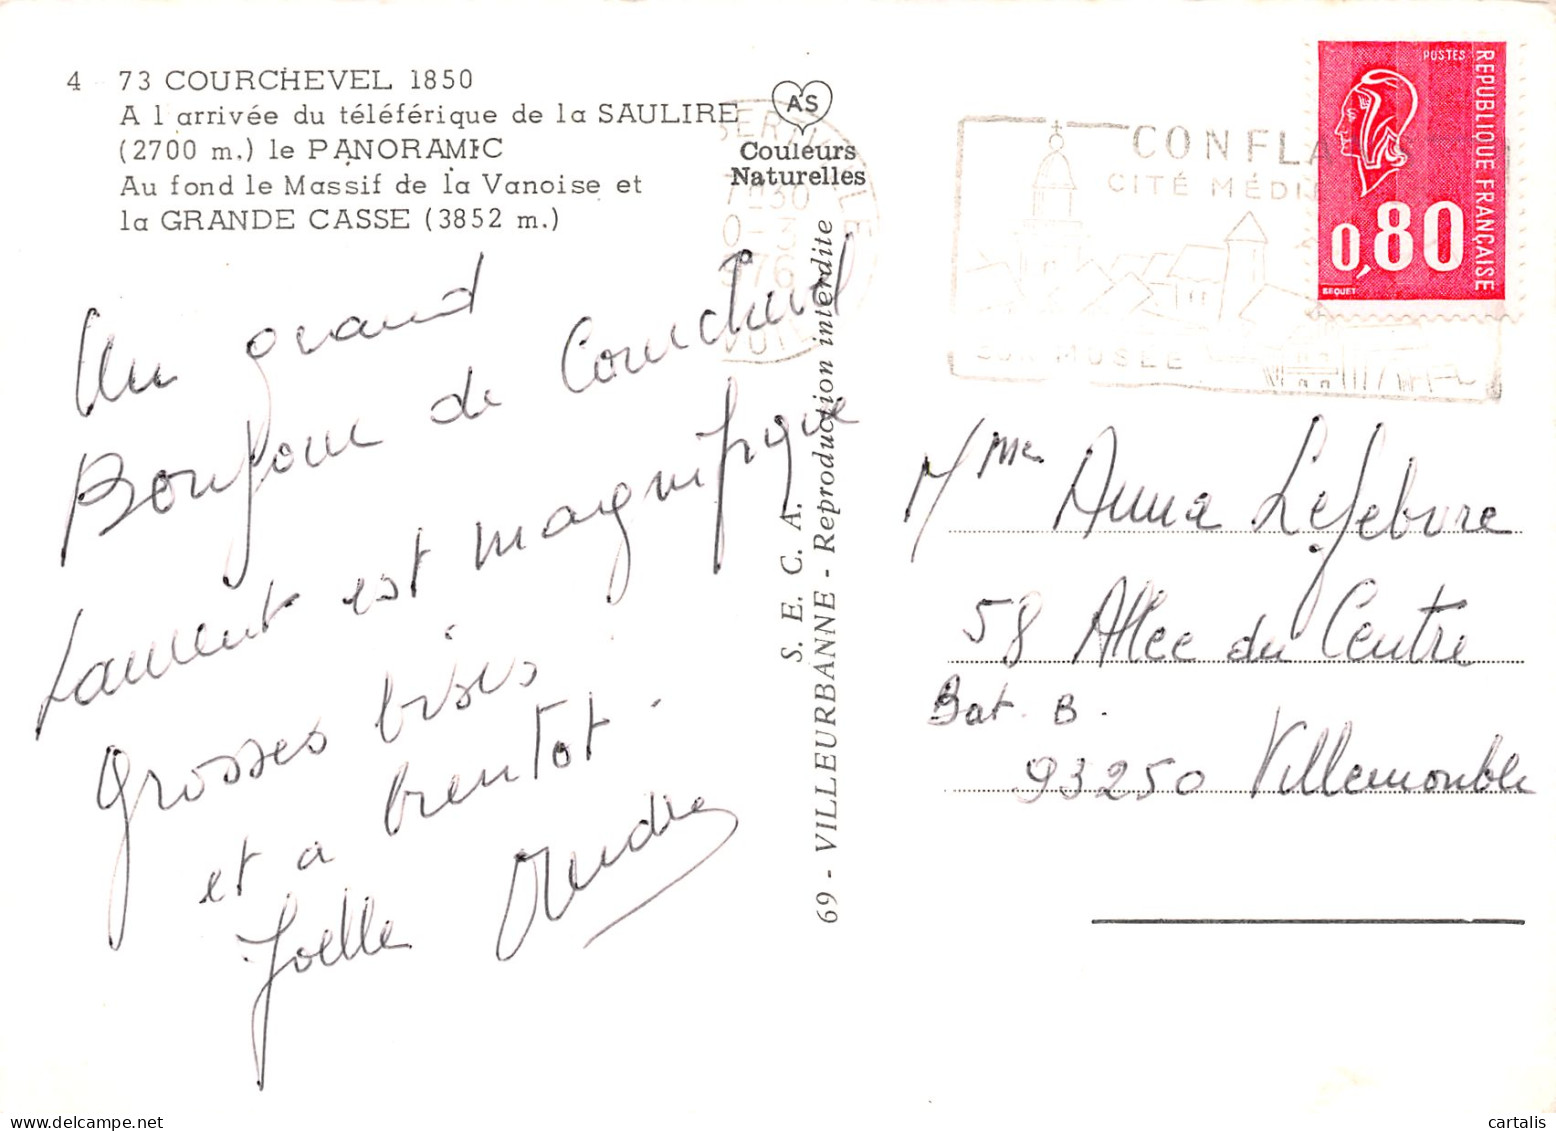 4 73 COURCHEVEL 1850
A l arrivée du téléférique de la SAULIRE
(2700 m.) le PANORAMIC
Au fond le Massif de la Vanoise et
la GRANDE CASSE (3852 m.)
AS
Couleurs
Naturelles
Un grand
Bonjour de Courchevel
Laurent est magnifique
grosses bises
et a bientot.
Joëlle
S. E. C. A.
69 - VILLEURBANNE - Reproduction interdite
CONFLA
CITÉ MÉDI
SON MUSEE
POSTES
REPUBLIQUE FRANÇAISE
0,80
BEQUET
Mme Anna Lefebvre
58 Allee du Centre
Bat. B.
93250 Villemomble
cartalis